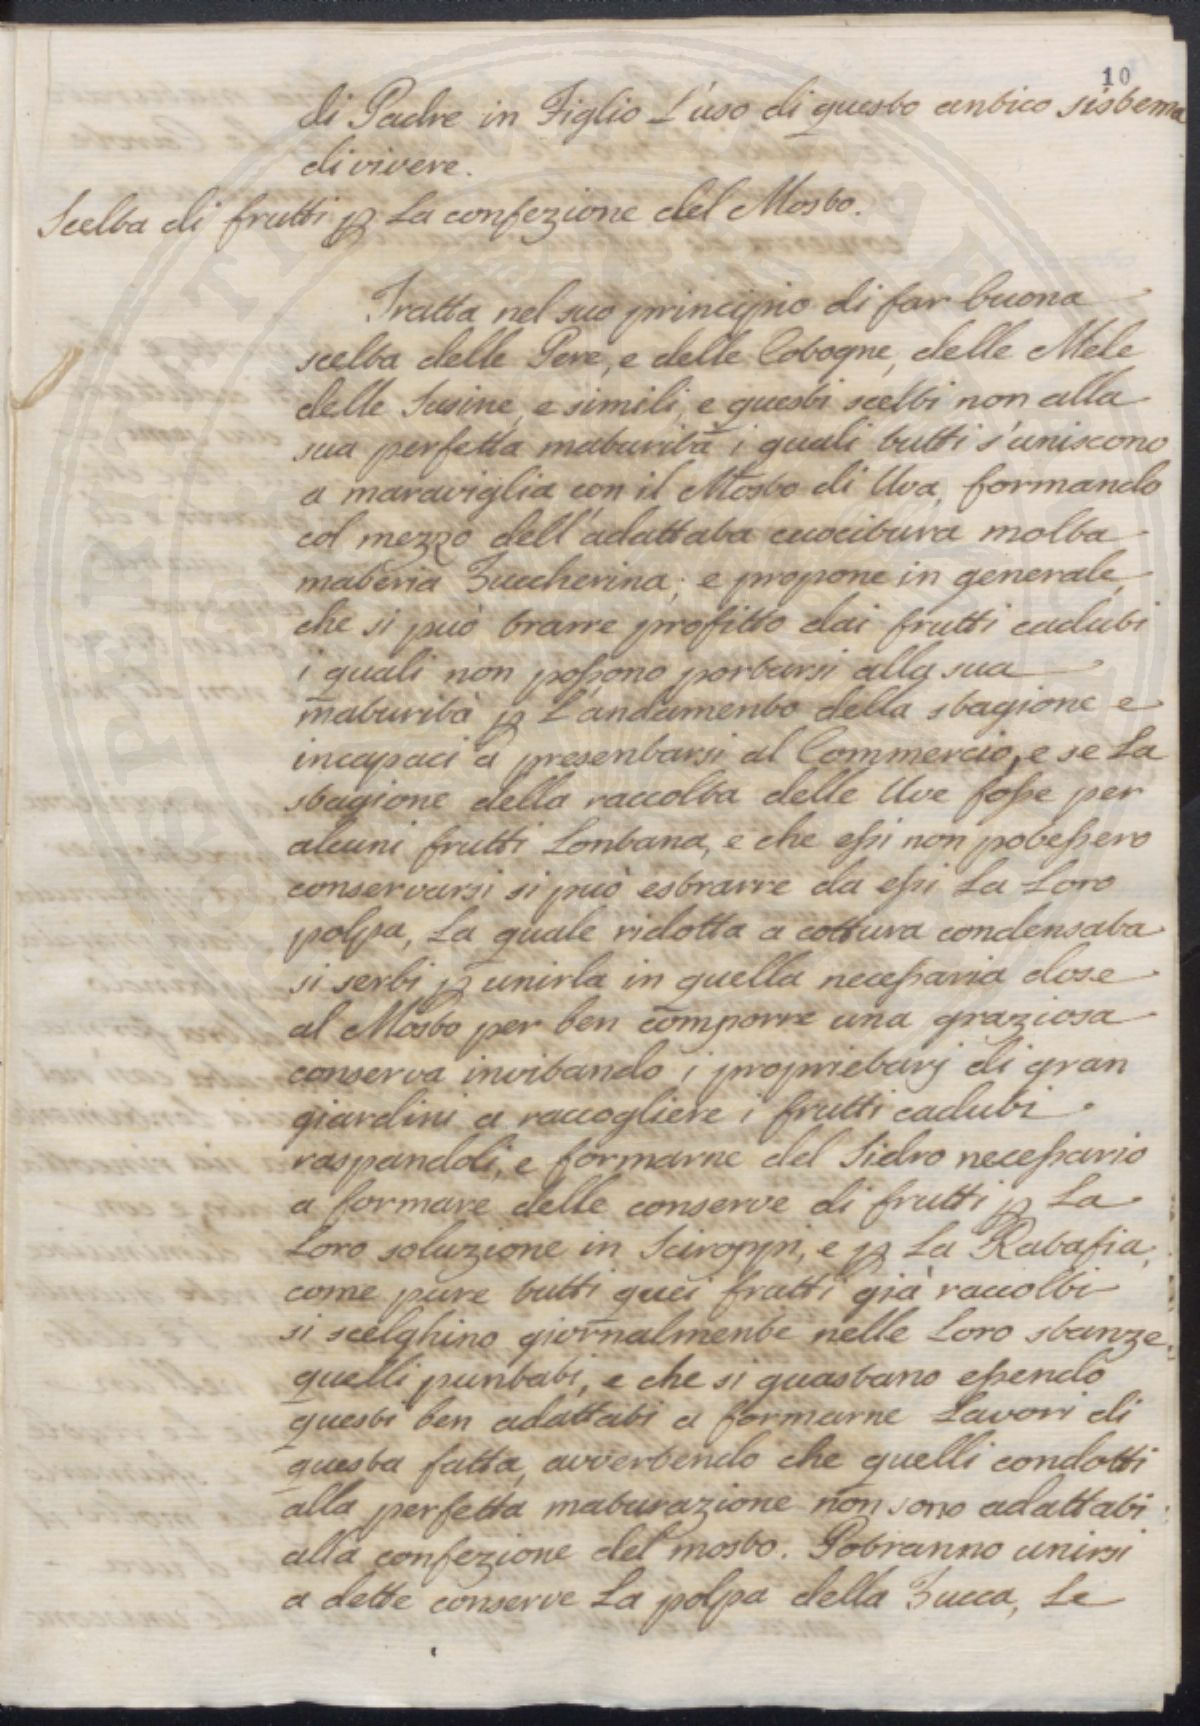 10
di Padre in Figlio L'uso di questo antico sistema
di vivere.
Scelta di frutti ꝑ La confezione del Mosto.
Tratta nel suo principio di far buona
scelta delle Pere, e delle Cotogne, delle Mele
delle Susine, e simili, e questi scelti non alla
sua perfetta maturità i quali tutti s'uniscono
a maraviglia con il Mosto di Uva, formando
col mezzo dell'adattata cuocitura molta
materia Zuccherina; e propone in generale,
che si può trarre profitto dai frutti caduti
i quali non poſsono portarsi alla sua
maturità ꝑ L'andamento della stagione e
incapaci a presentarsi al Commercio, e se La
stagione della raccolta delle Uve foſse per
alcuni frutti Lontana, e che eſsi non poteſsero
conservarsi si può estrarre da eſsi La Loro
polpa, La quale ridotta a cottura condensata
si serbi ꝑ unirla in quella neceſsaria dose
al Mosto per ben comporre una graziosa
conserva invitando i proprietarj di gran
giardini a raccogliere i frutti caduti
raspandoli, e formarne del Sidro neceſsario
a formare delle conserve di frutti ꝑ La
Loro soluzione in Sciroppi, e ꝑ La Ratafia,
come pure tutti quei frutti già raccolti
si scelghino giornalmente nelle Loro stanze
quelli puntati, e che si guastano eſsendo
questi ben adattati a formarne Lavori di
questa fatta, avvertendo che quelli condotti
alla perfetta maturazione non sono adattati
alla confezione del mosto. Potranno unirsi
a dette conserve La polpa della Zucca, Le